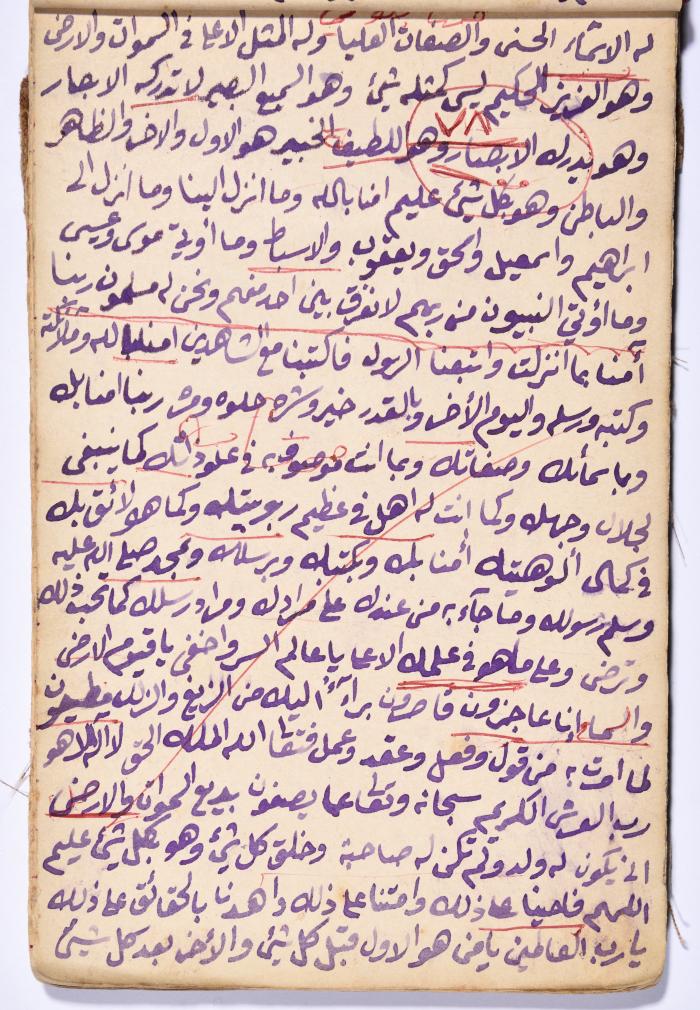 له الاسماء الحسنى والصفات العليا وله المثل الاعلى فى السموات والارض
وهو العزيز الحكيم ليس كمثله شيئ وهو السميع البصير لا تدركه الابصار
٧٨
وهو يدرك الابصار وهو اللطيف الخبير هو الاول والاخر والظاهر
والباطن وهو بكل شيئ عليم امنا بالله وما انزل الينا وما انزل الى
ابراهيم واسمعيل واسحق ويعقوب والاسباط وما اوتي موسى وعيسى
وما اوتي النبيون من ربهم لا نفرق بين احد منهم ونحن له مسلمون ربنا
آمنا بما انزلت واتبعنا الرسول فاكتبنا مع الشاهدين امنا بالله وملآئكته
وكتبه ورسله واليوم الأخر وبالقدر خيره وشره حلوه ومره ربنا امنا بك
وباسمائك وصفاتك وبما انت موصوف به فى علو ذاتك كما ينبغى
لجلال وجهك وكما انت له اهل فى عظيم ربوبيتك وكما هو لائق بك
فى كمال ألوهيتك أمنا بك وبكتبك وبرسلك وبمحمد صلى الله عليه
وسلم رسولك وما جآء به من عندك على مرادك ومراد رسلك كما تحب ذلك
وترضى وعلى ما هو فى علمك الاعلى يا عالم السر واخفى يا قيوم الارض
والسماء إنا عاجزون قاصرون برآءآ اليك من الزيغ والزلل مطيعون
لما امرت به من قول وفعل وعقد وعمل فتعالى الله الملك الحق لا اله الا هو
رب العرش الكريم سبحانه وتعالى عما يصفون بديع السموات والارض
انى يكون له ولد ولم تكن له صاحبة وخلق كل شيئ وهو بكل شيئ عليم
اللهم فاحينا على ذلك وامتنا على ذلك واهدنا بالحقائق على ذلك
يا رب العالمين يا من هو الاول قبل كل شيئ والأخر بعد كل شيئ